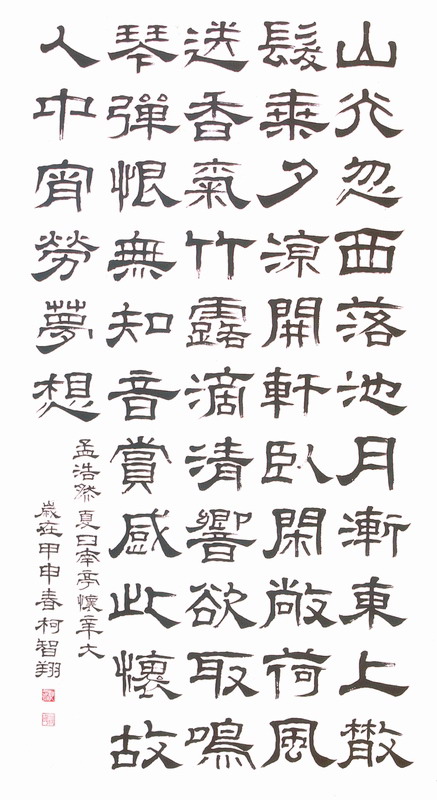 山光忽西落池月漸東上散
髮乘夕涼開軒臥閑敞荷風
送香氣竹露滴清響欲取鳴
琴彈恨無知音賞感此懷故
人中宵勞夢想
孟浩然夏日南亭懷辛大
歲在甲申春柯智翔